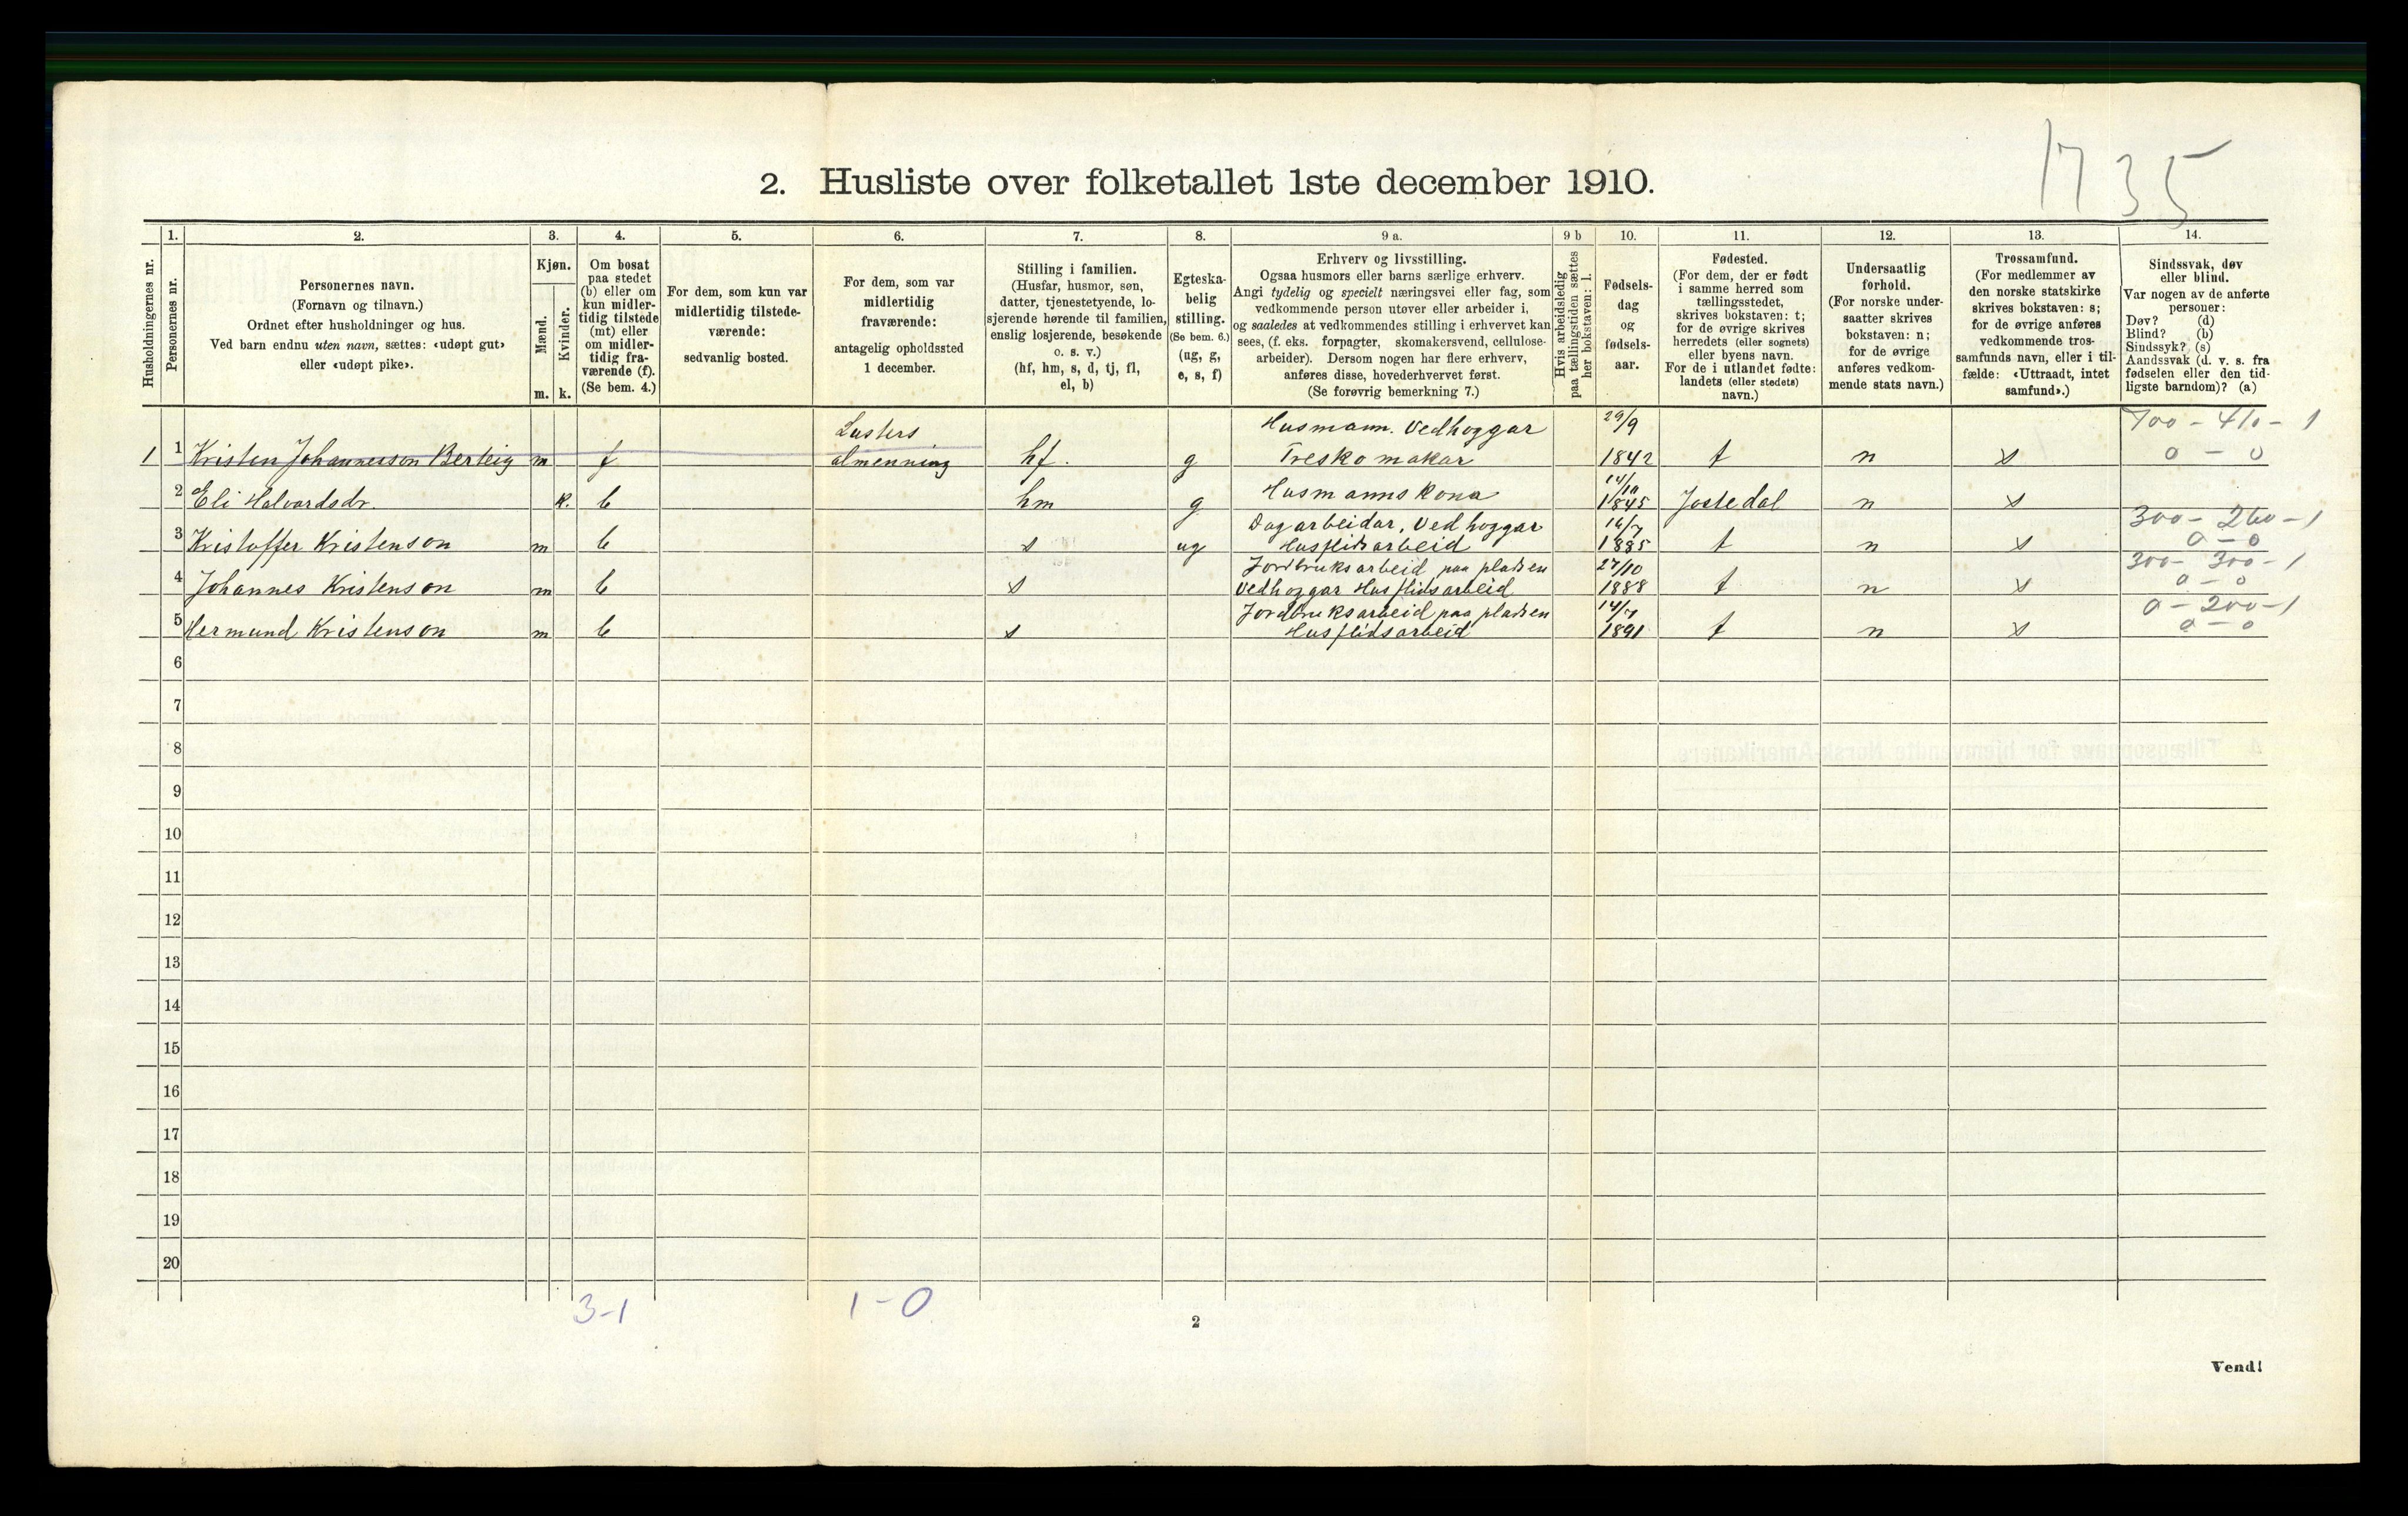 1735
2. Husliste over folketallet 1ste december 1910.
Husholdningernes nr.
1.
Personernes nr.
2.
Personernes navn.
(Fornavn og tilnavn.)
Ordnet efter husholdninger og hus.
Ved barn endnu uten navn, sættes: «udøpt gut»
eller «udøpt pike».
3.
Kjøn.
Mænd.
Kvinder.
m. k.
4.
Om bosat
paa stedet
(b) eller om
kun midler-
tidig tilstede
(mt) eller
om midler-
tidig fra-
værende (f).
(Se bem. 4.)
5.
For dem, som kun var
midlertidig tilstede-
værende:
sedvanlig bosted.
6.
For dem, som var
midlertidig
fraværende:
antagelig opholdssted
1 december.
7.
Stilling i familien.
(Husfar, husmor, søn,
datter, tjenestetyende, lo-
sjerende hørende til familien,
enslig losjerende, besøkende
o. s. v.)
(hf, hm, s, d, tj, fl,
el, b)
8.
Egteska-
belig
stilling.
(Se bem. 6.)
(ug, g,
e, s, f)
9 a.
Erhverv og livsstilling.
Ogsaa husmors eller barns særlige erhverv.
Angi tydelig og specielt næringsvei eller fag, som
vedkommende person utøver eller arbeider i,
og saaledes at vedkommendes stilling i erhvervet kan
sees, (f. eks. forpagter, skomakersvend, cellulose-
arbeider). Dersom nogen har flere erhverv,
anføres disse, hovederhvervet først.
(Se forøvrig bemerkning 7.)
9 b
Hvis arbeidsledig
paa tællingstiden sættes
her bokstaven: l.
10.
Fødsels-
dag
og
fødsels-
aar.
11.
Fødested.
(For dem, der er født
i samme herred som
tællingsstedet,
skrives bokstaven: t;
for de øvrige skrives
herredets (eller sognets)
eller byens navn.
For de i utlandet fødte:
landets (eller stedets)
navn.)
12.
Undersaatlig
forhold.
(For norske under-
saatter skrives
bokstaven: n;
for de øvrige
anføres vedkom-
mende stats navn.)
13.
Trossamfund.
(For medlemmer av
den norske statskirke
skrives bokstaven: s;
for de øvrige anføres
vedkommende tros-
samfunds navn, eller i til-
fælde: «Uttraadt, intet
samfund».)
14.
Sindssvak, døv
eller blind.
Var nogen av de anførte
personer:
Døv? (d)
Blind? (b)
Sindssyk? (s)
Aandssvak (d. v. s. fra
fødselen eller den tid-
ligste barndom)? (a)
Lusters Husmann. Vedhoggar 29/9 700 - 410 - 1
1 1 Kristen Johannesson Berteig m f almenning hf. g Treskomakar 1842 t n s 0 - 0
14/10
2 Eli Halvardsdr. k. b hm g Husmannskona 1845 Jostedal n s
Dagarbeidar, Vedhoggar 16/7 300 - 260 - 1
3 Kristoffer Kristenson m b s ug Husflidsarbeid 1885 t n s 0 - 0
Jordbruksarbeid paa pladsen 27/10 300 - 300 - 1
4 Johannes Kristenson m b s Vedhoggar Husflidsarbeid 1888 t n s 0 - 0
Jordbruksarbeid paa pladsen 14/7 0 - 200 - 1
5 Hermund Kristenson m b s Husflidsarbeid 1891 t n s 0 - 0
6
7
8
9
10
11
12
13
14
15
16
17
18
19
20
3-1 1-0
2
Vend!